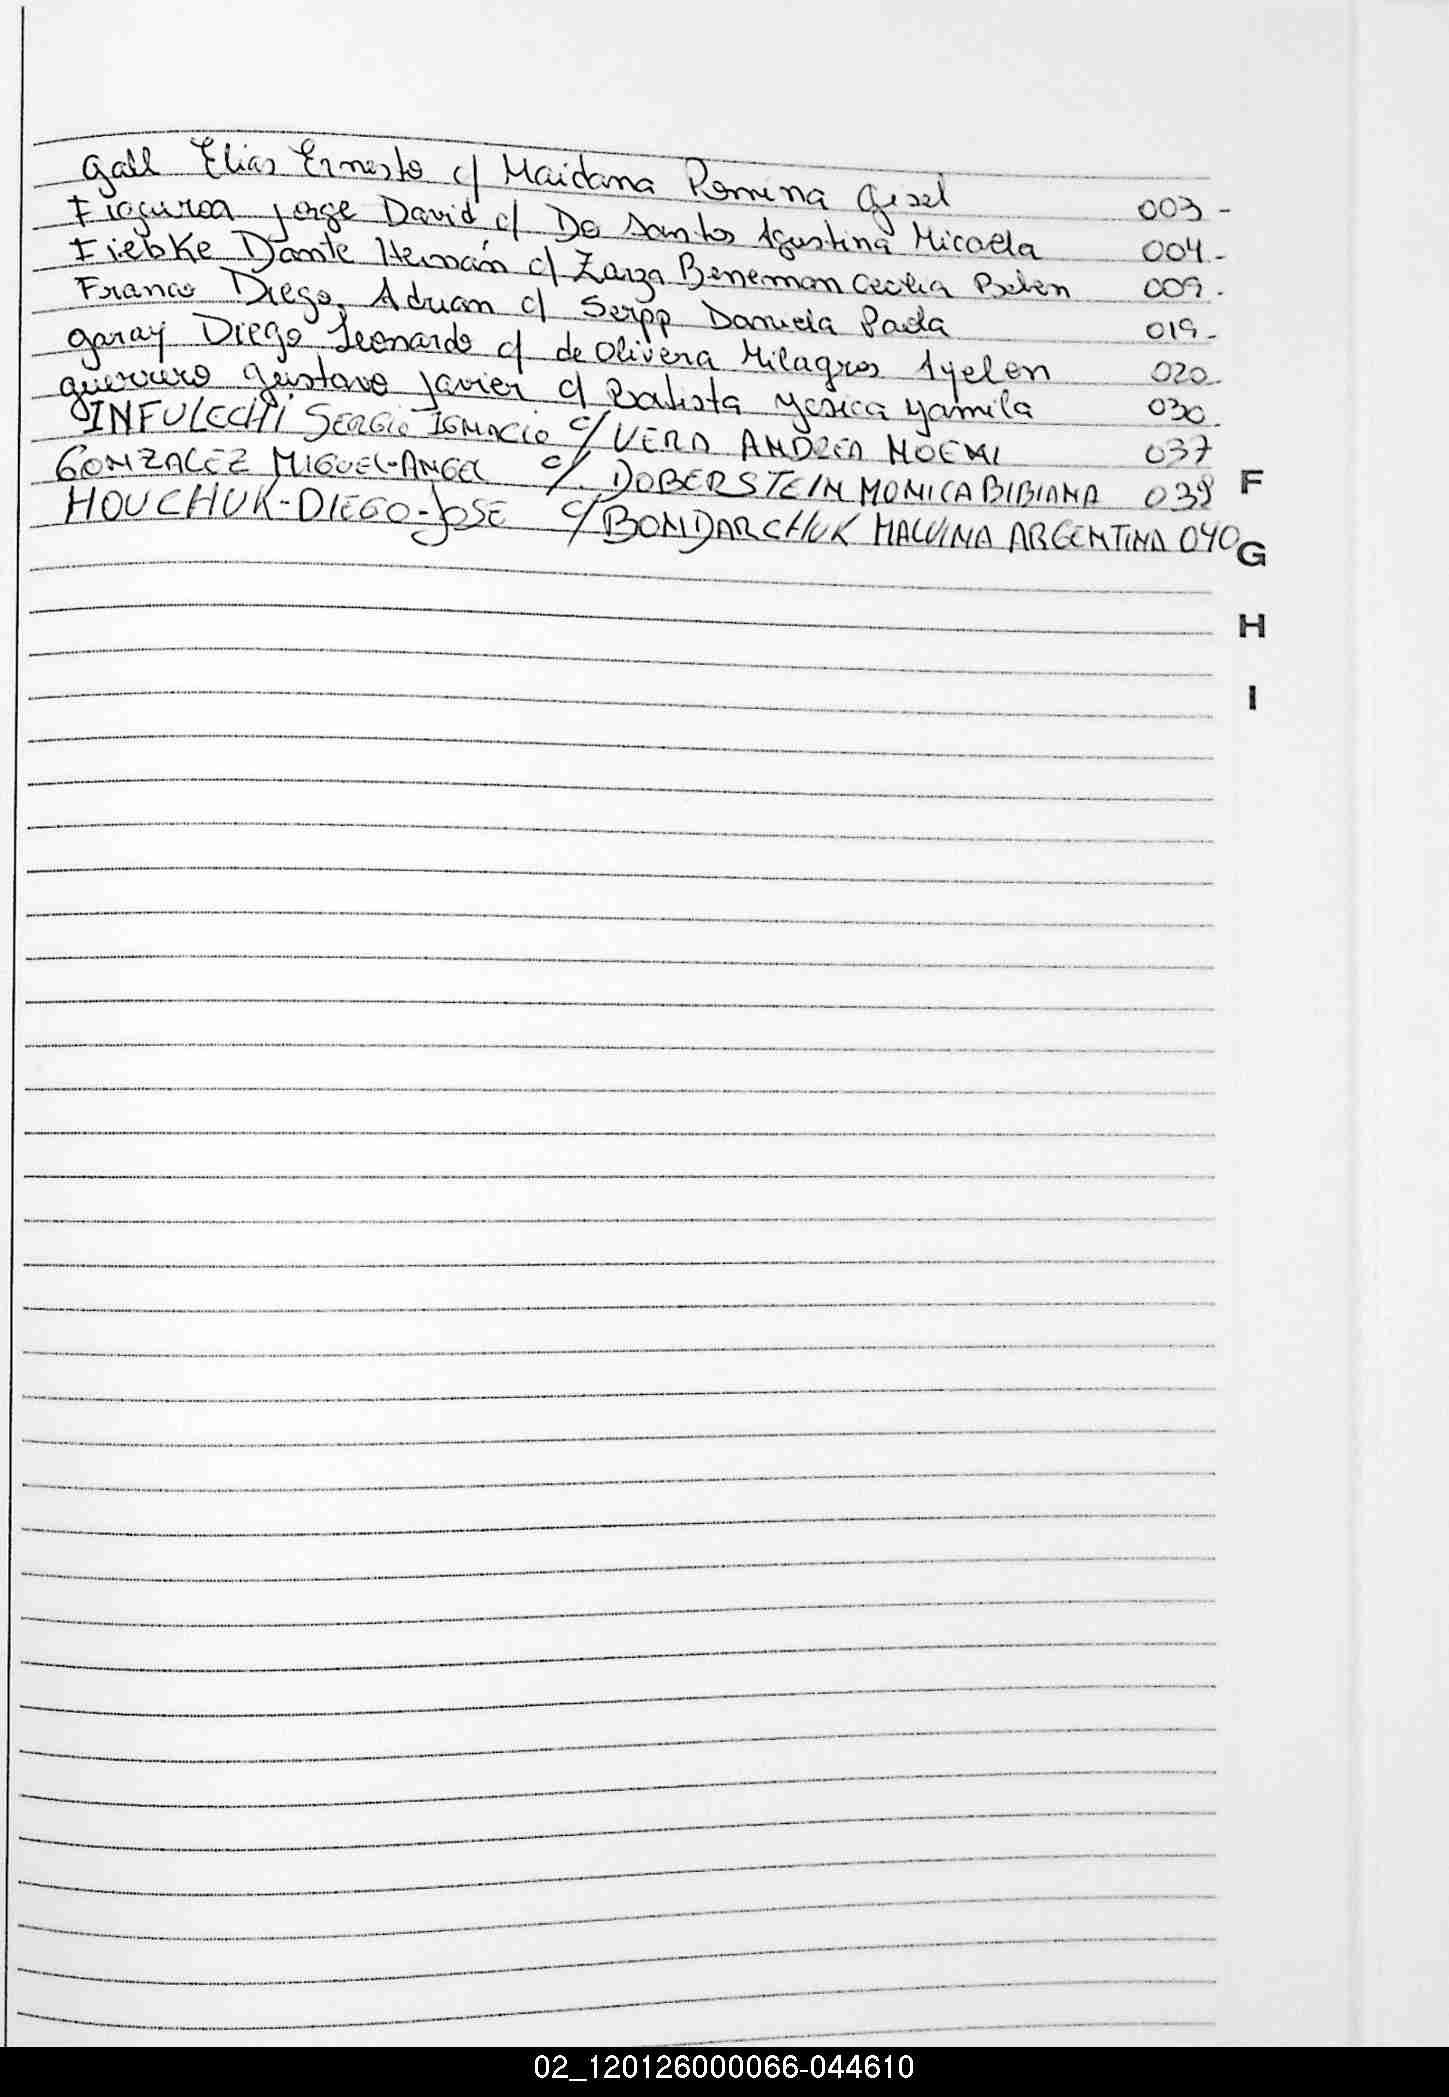 Gall Elias Ernesto c/ Maidana Romina Gisel 003-
Figueroa Jorge David c/ Do Santos Agustina Micaela 004-
Fiebke Dante Hernán c/ Zarza Beneman Cecilia Belen 009-
Franco Diego Adrian c/ Serpp Daniela Paola 019-
Garay Diego Leonardo c/ de Olivera Milagros Ayelen 020-
Guerrero Gustavo Javier c/ Batista Yesica Yamila 030-
INFULECCHI SERGIO IGNACIO c/ VERA ANDREA NOEMI 037
GONZALEZ MIGUEL-ANGEL c/. DOBERSTEIN MONICA BIBIANA 038
HOUCHUK-DIEGO-JOSE c/ BONDARCHUK MALVINA ARGENTINA 040
F
G
H
I
02_120126000066-044610